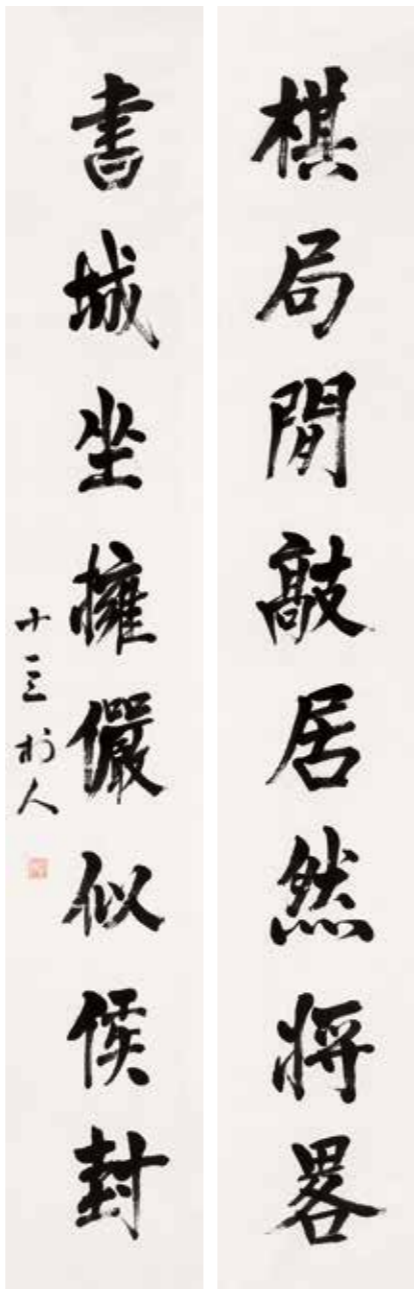 棋局閒敲居然將畧
書城坐擁儼似侯封
人